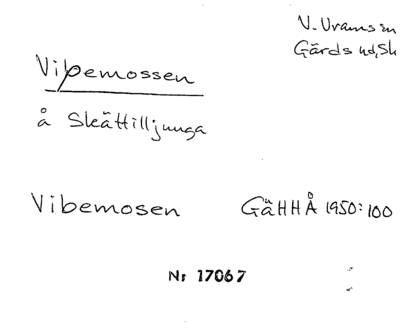 V. Vrams sn
Gärds hd, Sk
Vipemossen
å Skättilljunga
Vibemosen GäHHÅ 1950:100
Nr 17067